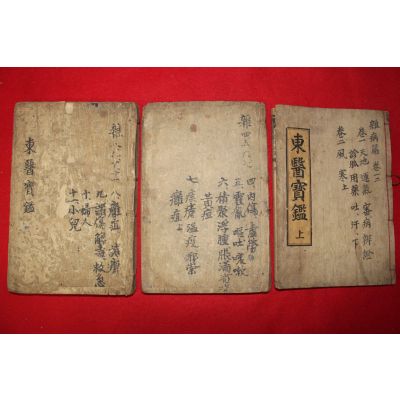 雜病篇
卷一 天地運氣 審病 辨證
診脈 用藥 吐 汗 下
卷二 風 寒上
東醫寶鑑 上
雜 四五六七
四 內傷 虛勞
五 霍亂 嘔吐 咳嗽
六 積聚 浮腫 脹滿
黃疸
七 痎瘧 瘟疫 邪祟
癰疽上
雜
八 癰疽 諸瘡
九 諸傷 解毒 救急
十 婦人
十一 小兒
東醫寶鑑